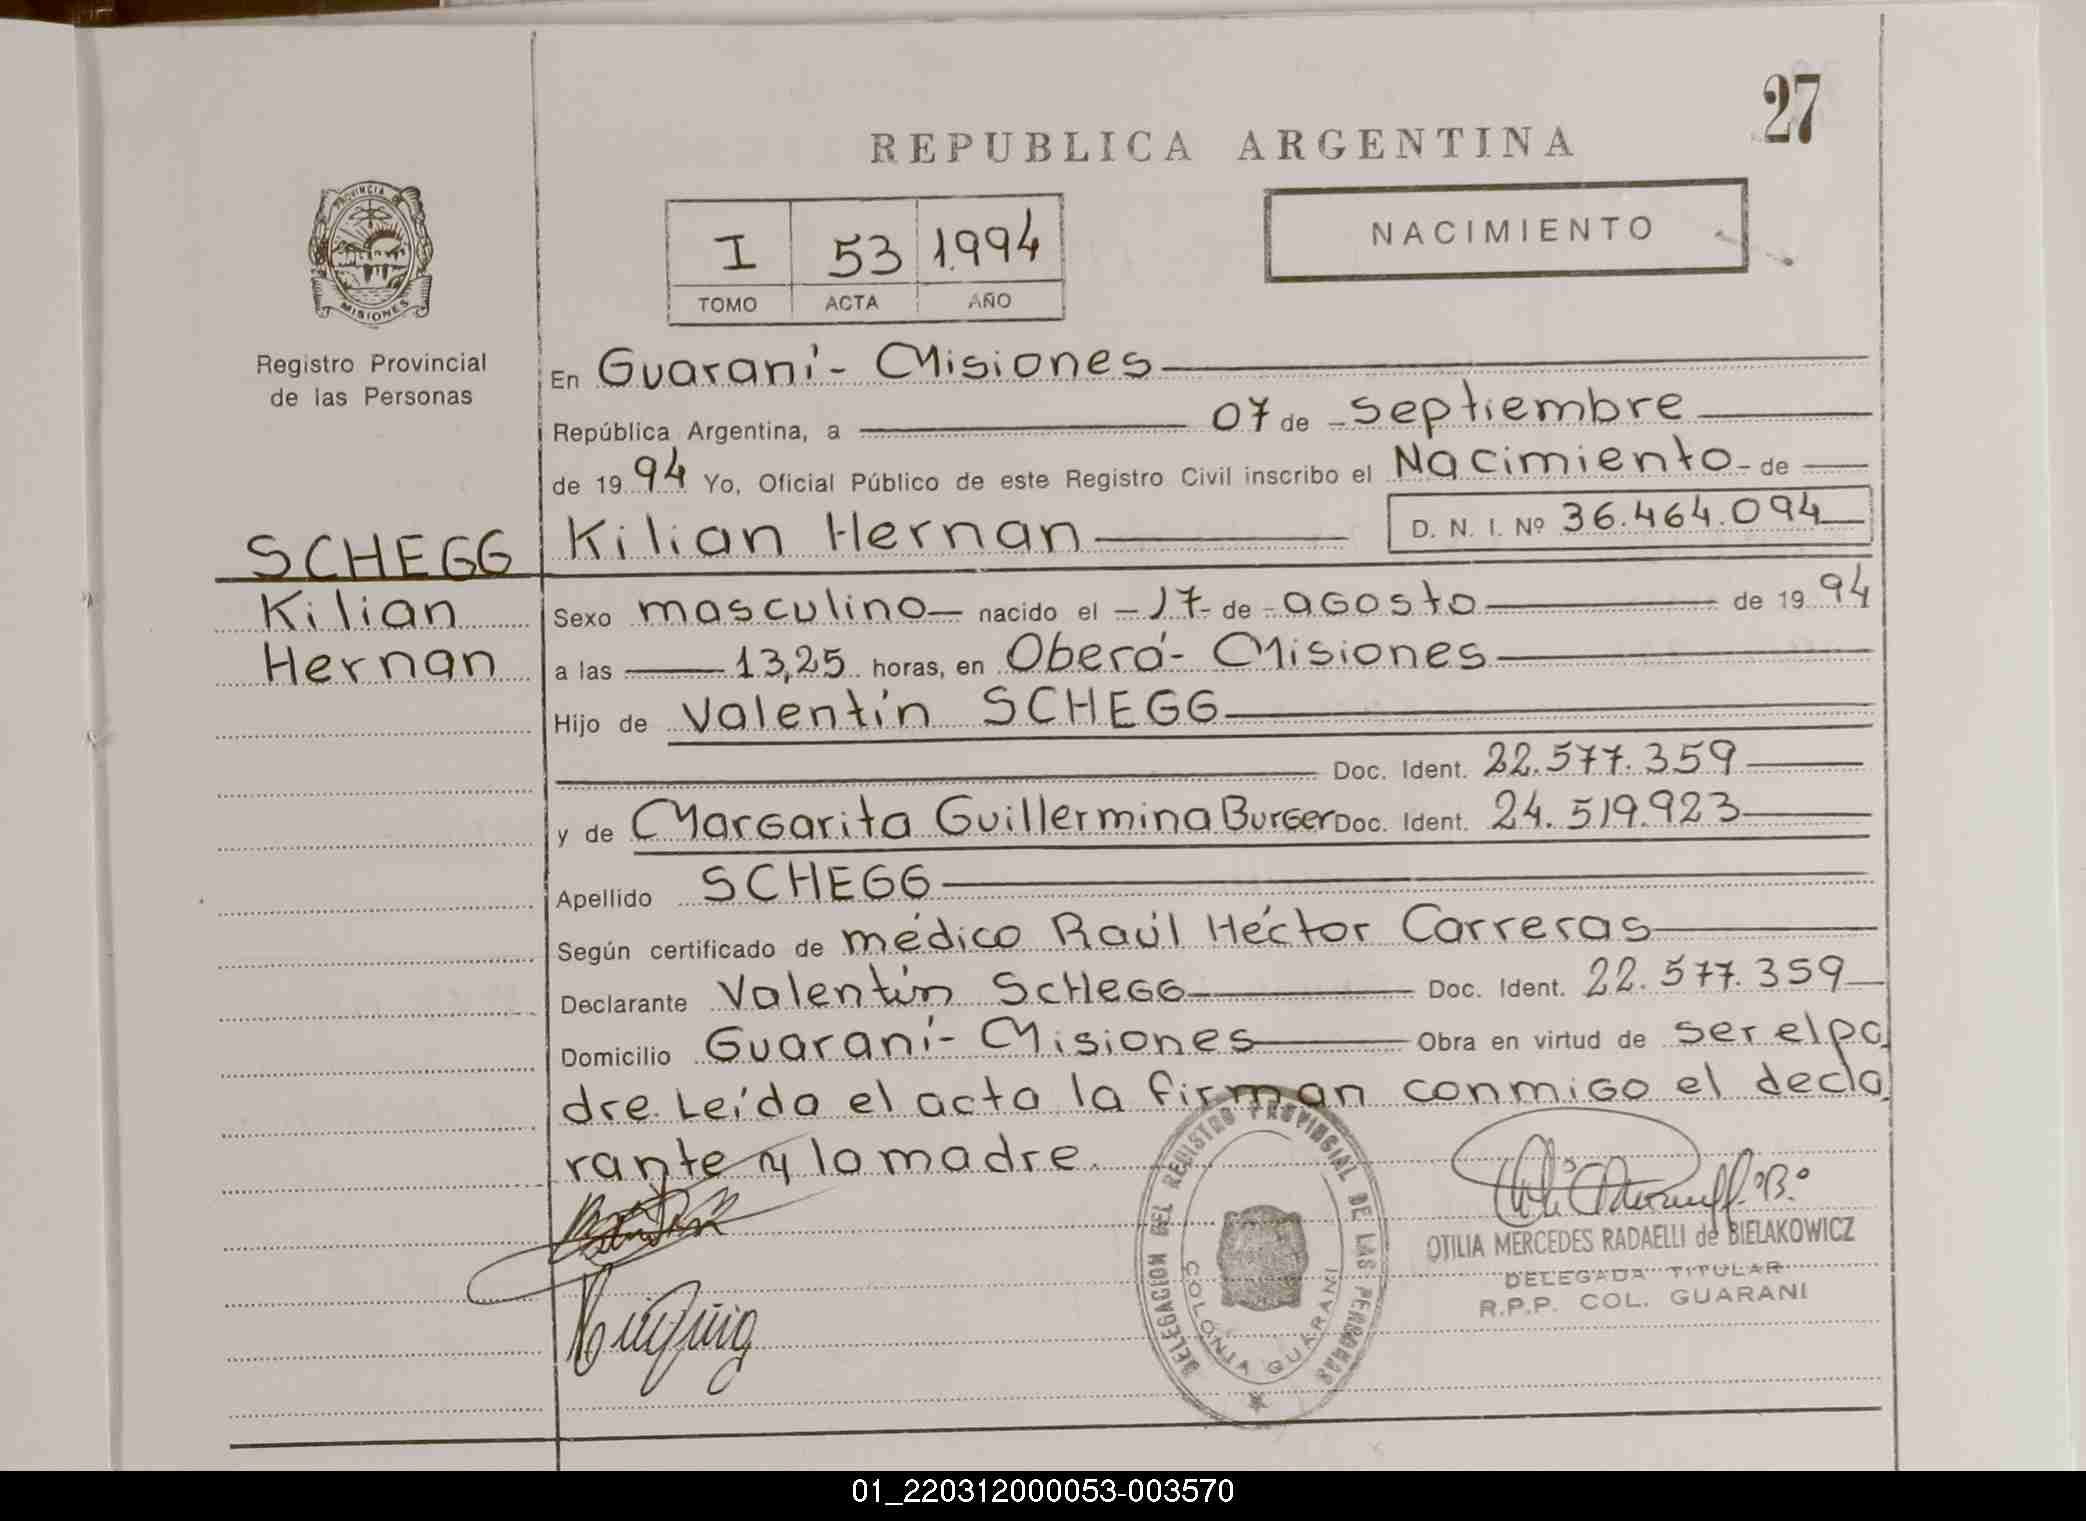 27
REPUBLICA ARGENTINA
PROVINCIA DE
MISIONES
Registro Provincial
de las Personas
I 53 1.994
TOMO ACTA AÑO
NACIMIENTO
En Guaraní - Misiones
República Argentina, a 07 de - septiembre
de 19 94 Yo, Oficial Público de este Registro Civil inscribo el Nacimiento - de
SCHEGG
Kilian
Hernan
Kilian Hernan D. N. I. Nº 36.464.094
Sexo masculino nacido el - 17 - de - agosto de 19 94
a las 13,25 horas, en Oberá - Misiones
Hijo de Valentín SCHEGG
Doc. Ident. 22.577.359
y de Margarita Guillermina Burger Doc. Ident. 24.519.923
Apellido SCHEGG
Según certificado de médico Raúl Héctor Carreras
Declarante Valentín ScHeGG Doc. Ident. 22.577.359
Domicilio Guaraní - Misiones Obra en virtud de ser el pa
dre. Leída el acta la firman conmigo el decla
rante y la madre.
DELEGACION DEL REGISTRO PROVINCIAL DE LAS PERSONAS
COLONIA GUARANI
OTILIA MERCEDES RADAELLI de BIELAKOWICZ
DELEGADA TITULAR
R.P.P. COL. GUARANI
01_220312000053-003570